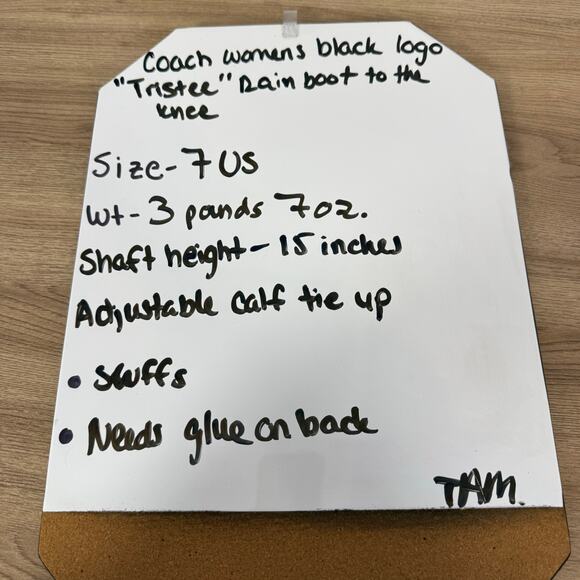 Coach womens black logo
"Tristee" Rain boot to the
knee
Size- 7 US
Wt- 3 pounds 7oz.
Shaft height- 15 inches
Adjustable calf tie up
• Scuffs
• Needs glue on back
TAM.